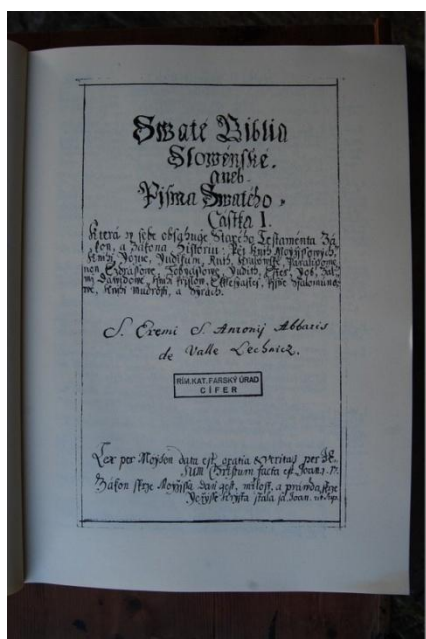 Swaté Biblia
Slowénské.
aneb
Pisma Swatého,
Částka I.
Která w sebe obsahuge Starého Testamenta Zá-
kon, a Zákona Historiu: Pět Knih Moyžissowých,
Knihi Yozue, Yudikum, Ruth, Kralowské, Paralipome-
non, Ezdrássowe, Tobyássowe, Yudith, Ester, Yob, Žal-
mi Dawidowe, Knihi Ekklezyastes,
Knihi Mudrosti, a Syrach.
S. Eremi S. Antonij Abbatis
de Valle Lechnicz.
RÍM.KAT.FARSKÝ ÚRAD
CÍFER
Lex per Moyson data est, gratia & veritas per Je-
sum Christum facta est, Joan. 1. 17.
Zákon skrze Moyžissa dan gest, milost, a prawda skrze
Gežisse Krysta stala sa Joan.